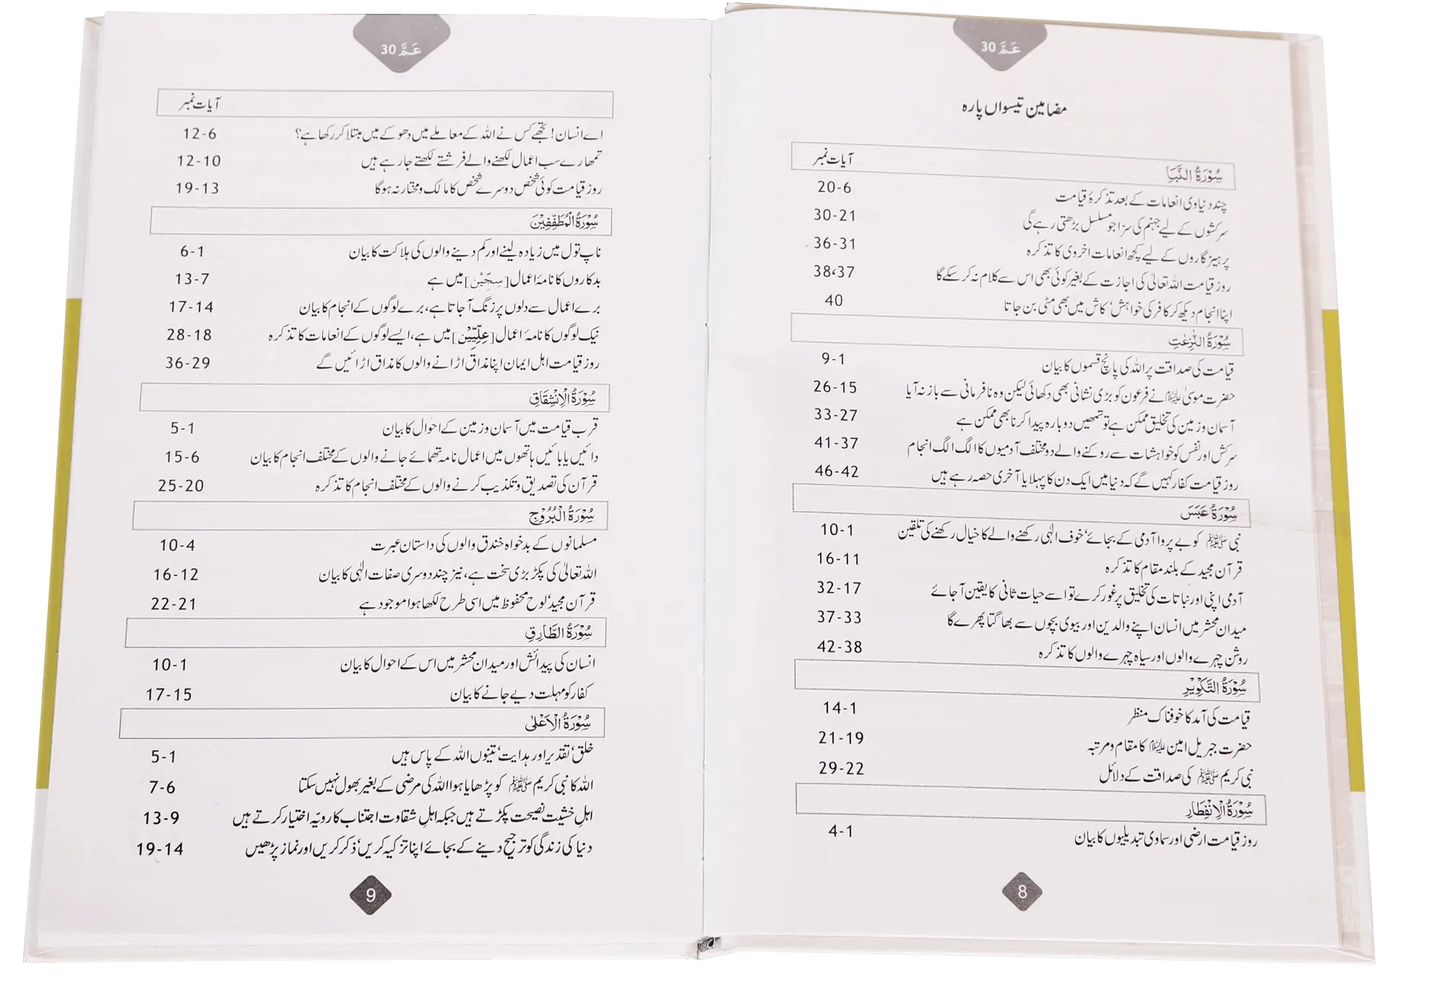 عَمَّ 30
مضامین تیسواں پارہ
آیات نمبر
سُوْرَةُ النَّبَاِ
چند دنیاوی انعامات کے بعد تذکرۂ قیامت 6-20
سرکشوں کے لیے جہنم کی سزا جو مسلسل بڑھتی رہے گی 21-30
پرہیزگاروں کے لیے کچھ انعامات اخروی کا تذکرہ 31-36
روز قیامت اللہ تعالیٰ کی اجازت کے بغیر کوئی بھی اس سے کلام نہ کر سکے گا 37،38
اپنا انجام دیکھ کر کافر کی خواہش ’ کاش میں بھی مٹی بن جاتا 40
سُوْرَةُ النّٰزِعٰتِ
قیامت کی صداقت پر اللہ کی پانچ قسموں کا بیان 1-9
حضرت موسیٰ علیہ السلام نے فرعون کو بڑی نشانی بھی دکھائی لیکن وہ نافرمانی سے باز نہ آیا 15-26
آسمان و زمین کی تخلیق ممکن ہے تو تمھیں دوبارہ پیدا کرنا بھی ممکن ہے 27-33
سرکش اور نفس کو خواہشات سے روکنے والے دو مختلف آدمیوں کا الگ الگ انجام 37-41
روز قیامت کفار کہیں گے کہ دنیا میں ایک دن کا پہلا یا آخری حصہ رہے ہیں 42-46
سُوْرَةُ عَبَسَ
نبی ﷺ کو بے پروا آدمی کے بجائے ’ خوف الٰہی رکھنے والے کا خیال رکھنے کی تلقین 1-10
قرآن مجید کے بلند مقام کا تذکرہ 11-16
آدمی اپنی اور نباتات کی تخلیق پر غور کرے تو اسے حیات ثانی کا یقین آ جائے 17-32
میدان محشر میں انسان اپنے والدین اور بیوی بچوں سے بھاگتا پھرے گا 33-37
روشن چہرے والوں اور سیاہ چہرے والوں کا تذکرہ 38-42
سُوْرَةُ التَّكْوِيْرِ
قیامت کی آمد کا خوفناک منظر 1-14
حضرت جبریل امین علیہ السلام کا مقام و مرتبہ 19-21
نبی کریم ﷺ کی صداقت کے دلائل 22-29
سُوْرَةُ الْاِنْفِطَارِ
روز قیامت ارضی اور سماوی تبدیلیوں کا بیان 1-4
8
عَمَّ 30
آیات نمبر
اے انسان! تجھے کس نے اللہ کے معاملے میں دھوکے میں مبتلا کر رکھا ہے؟ 6-12
تمھارے سب اعمال لکھنے والے فرشتے لکھتے جا رہے ہیں 10-12
روز قیامت کوئی شخص دوسرے شخص کا مالک و مختار نہ ہوگا 13-19
سُوْرَةُ الْمُطَفِّفِيْنَ
ناپ تول میں زیادہ لینے اور کم دینے والوں کی ہلاکت کا بیان 1-6
بدکاروں کا نامۂ اعمال [سِجِّيْن] میں ہے 7-13
برے اعمال سے دلوں پر زنگ آ جاتا ہے، برے لوگوں کے انجام کا بیان 14-17
نیک لوگوں کا نامۂ اعمال [عِلِّيِّيْنَ] میں ہے، ایسے لوگوں کے انعامات کا تذکرہ 18-28
روز قیامت اہل ایمان اپنا مذاق اڑانے والوں کا مذاق اڑائیں گے 29-36
سُوْرَةُ الْاِنْشِقَاقِ
قرب قیامت میں آسمان و زمین کے احوال کا بیان 1-5
دائیں یا بائیں ہاتھوں میں اعمال نامہ تھمائے جانے والوں کے مختلف انجام کا بیان 6-15
قرآن کی تصدیق و تکذیب کرنے والوں کے مختلف انجام کا تذکرہ 20-25
سُوْرَةُ الْبُرُوْجِ
مسلمانوں کے بدخواہ خندق والوں کی داستان عبرت 4-10
اللہ تعالیٰ کی پکڑ بڑی سخت ہے، نیز چند دوسری صفات الٰہی کا بیان 12-16
قرآن مجید ’ لوح محفوظ میں اسی طرح لکھا ہوا موجود ہے 21-22
سُوْرَةُ الطَّارِقِ
انسان کی پیدائش اور میدان محشر میں اس کے احوال کا بیان 1-10
کفار کو مہلت دیے جانے کا بیان 15-17
سُوْرَةُ الْاَعْلٰى
خلق ’ تقدیر اور ہدایت ’ تینوں اللہ کے پاس ہیں 1-5
اللہ کا نبی کریم ﷺ کو پڑھایا ہوا اللہ کی مرضی کے بغیر بھول نہیں سکتا 6-7
اہلِ خشیت نصیحت پکڑتے ہیں جبکہ اہلِ شقاوت اجتناب کا رویّہ اختیار کرتے ہیں 9-13
دنیا کی زندگی کو ترجیح دینے کے بجائے اپنا تزکیہ کریں ’ ذکر کریں اور نماز پڑھیں 14-19
9